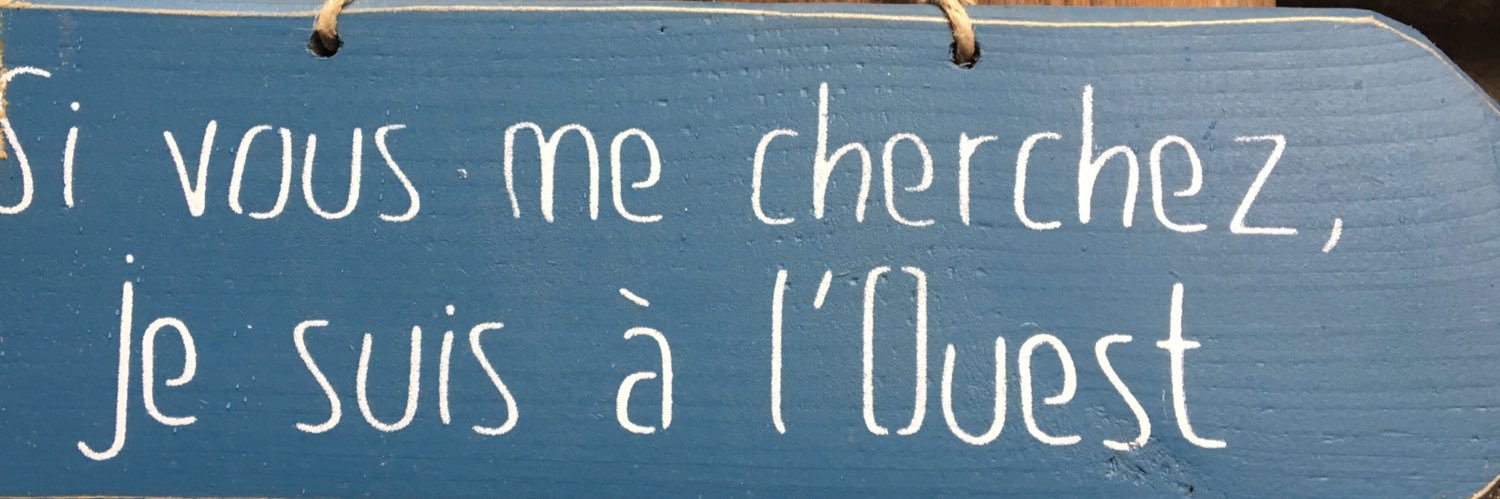 Si vous me cherchez,
je suis à l'Ouest